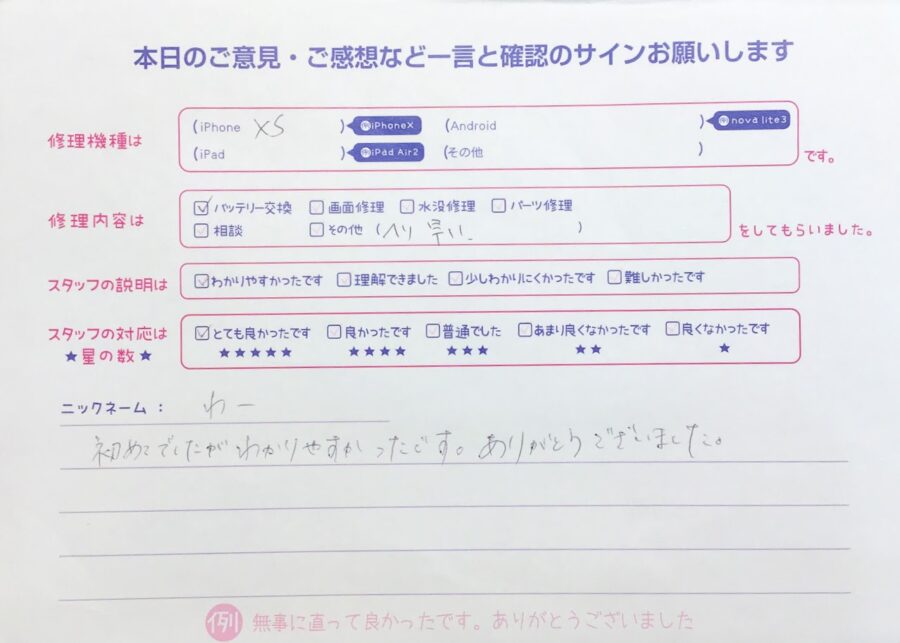 本日のご意見・ご感想など一言と確認のサインお願いします
修理機種は (iPhone XS ) iPhoneX (Android ) nova lite3
(iPad ) iPad Air2 (その他 ) です。
修理内容は ☑バッテリー交換 □画面修理 □水没修理 □パーツ修理
□相談 □その他 (ヘリ早い. ) をしてもらいました。
スタッフの説明は ☑わかりやすかったです □理解できました □少しわかりにくかったです □難しかったです
スタッフの対応は ☑とても良かったです □良かったです □普通でした □あまり良くなかったです □良くなかったです
★星の数★ ★★★★★ ★★★★ ★★★ ★★ ★
ニックネーム： わー
初めてでしたがわかりやすかったです。ありがとうございました。
例 無事に直って良かったです。ありがとうございました